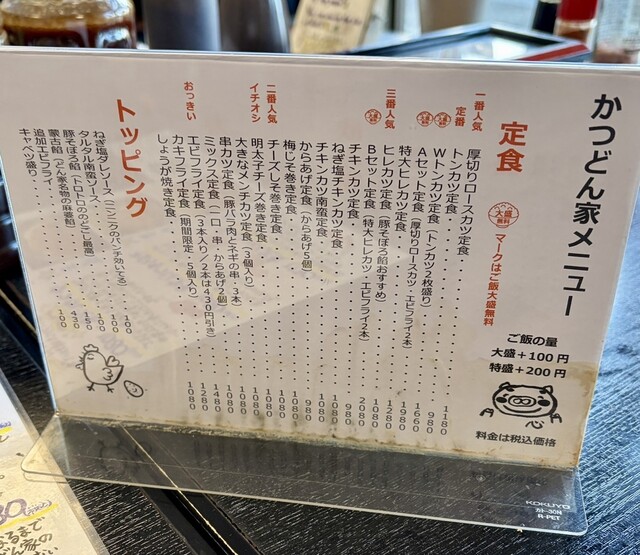 かつどん家メニュー
ご飯の量
大盛+100円
特盛+200円
料金は税込価格
定食
大盛無料
マークはご飯大盛無料
一番人気
厚切りロースカツ定食 1180
定番
トンカツ定食 980
Wトンカツ定食(トンカツ2枚盛り) 1660
Aセット定食(厚切りロースカツ・エビフライ2本) 1980
特大ヒレカツ定食 1280
三番人気
ヒレカツ定食(豚そぼろ餡おすすめ) 1080
Bセット定食(特大ヒレカツ・エビフライ2本) 2080
チキンカツ定食 980
ねぎ塩チキンカツ定食 1080
チキンカツ南蛮定食 1080
からあげ定食(からあげ5個) 980
梅じそ巻き定食 1080
チーズしそ巻き定食 1080
二番人気
イチオシ
明太子チーズ巻き定食 1080
大きなメンチカツ定食(3個入り) 1080
串カツ定食(豚バラ肉とネギの串 3本) 1080
ミックス定食(一口・串・からあげ2個) 1480
エビフライ定食(3本入り/2本は430円引き) 1280
おっきい
カキフライ定食(期間限定 5個入り) 1080
しょうが焼き定食 1080
トッピング
ねぎ塩ダレソース(ニンニクのパンチ効いてる) 100
タルタル南蛮ソース 100
豚そぼろ餡(トロトロののどごし最高) 100
蒙古餡(どん家名物の麻婆餡) 150
追加エビフライ 430
キャベツ盛り 100
KOKUYO
カト-30N
R-PET